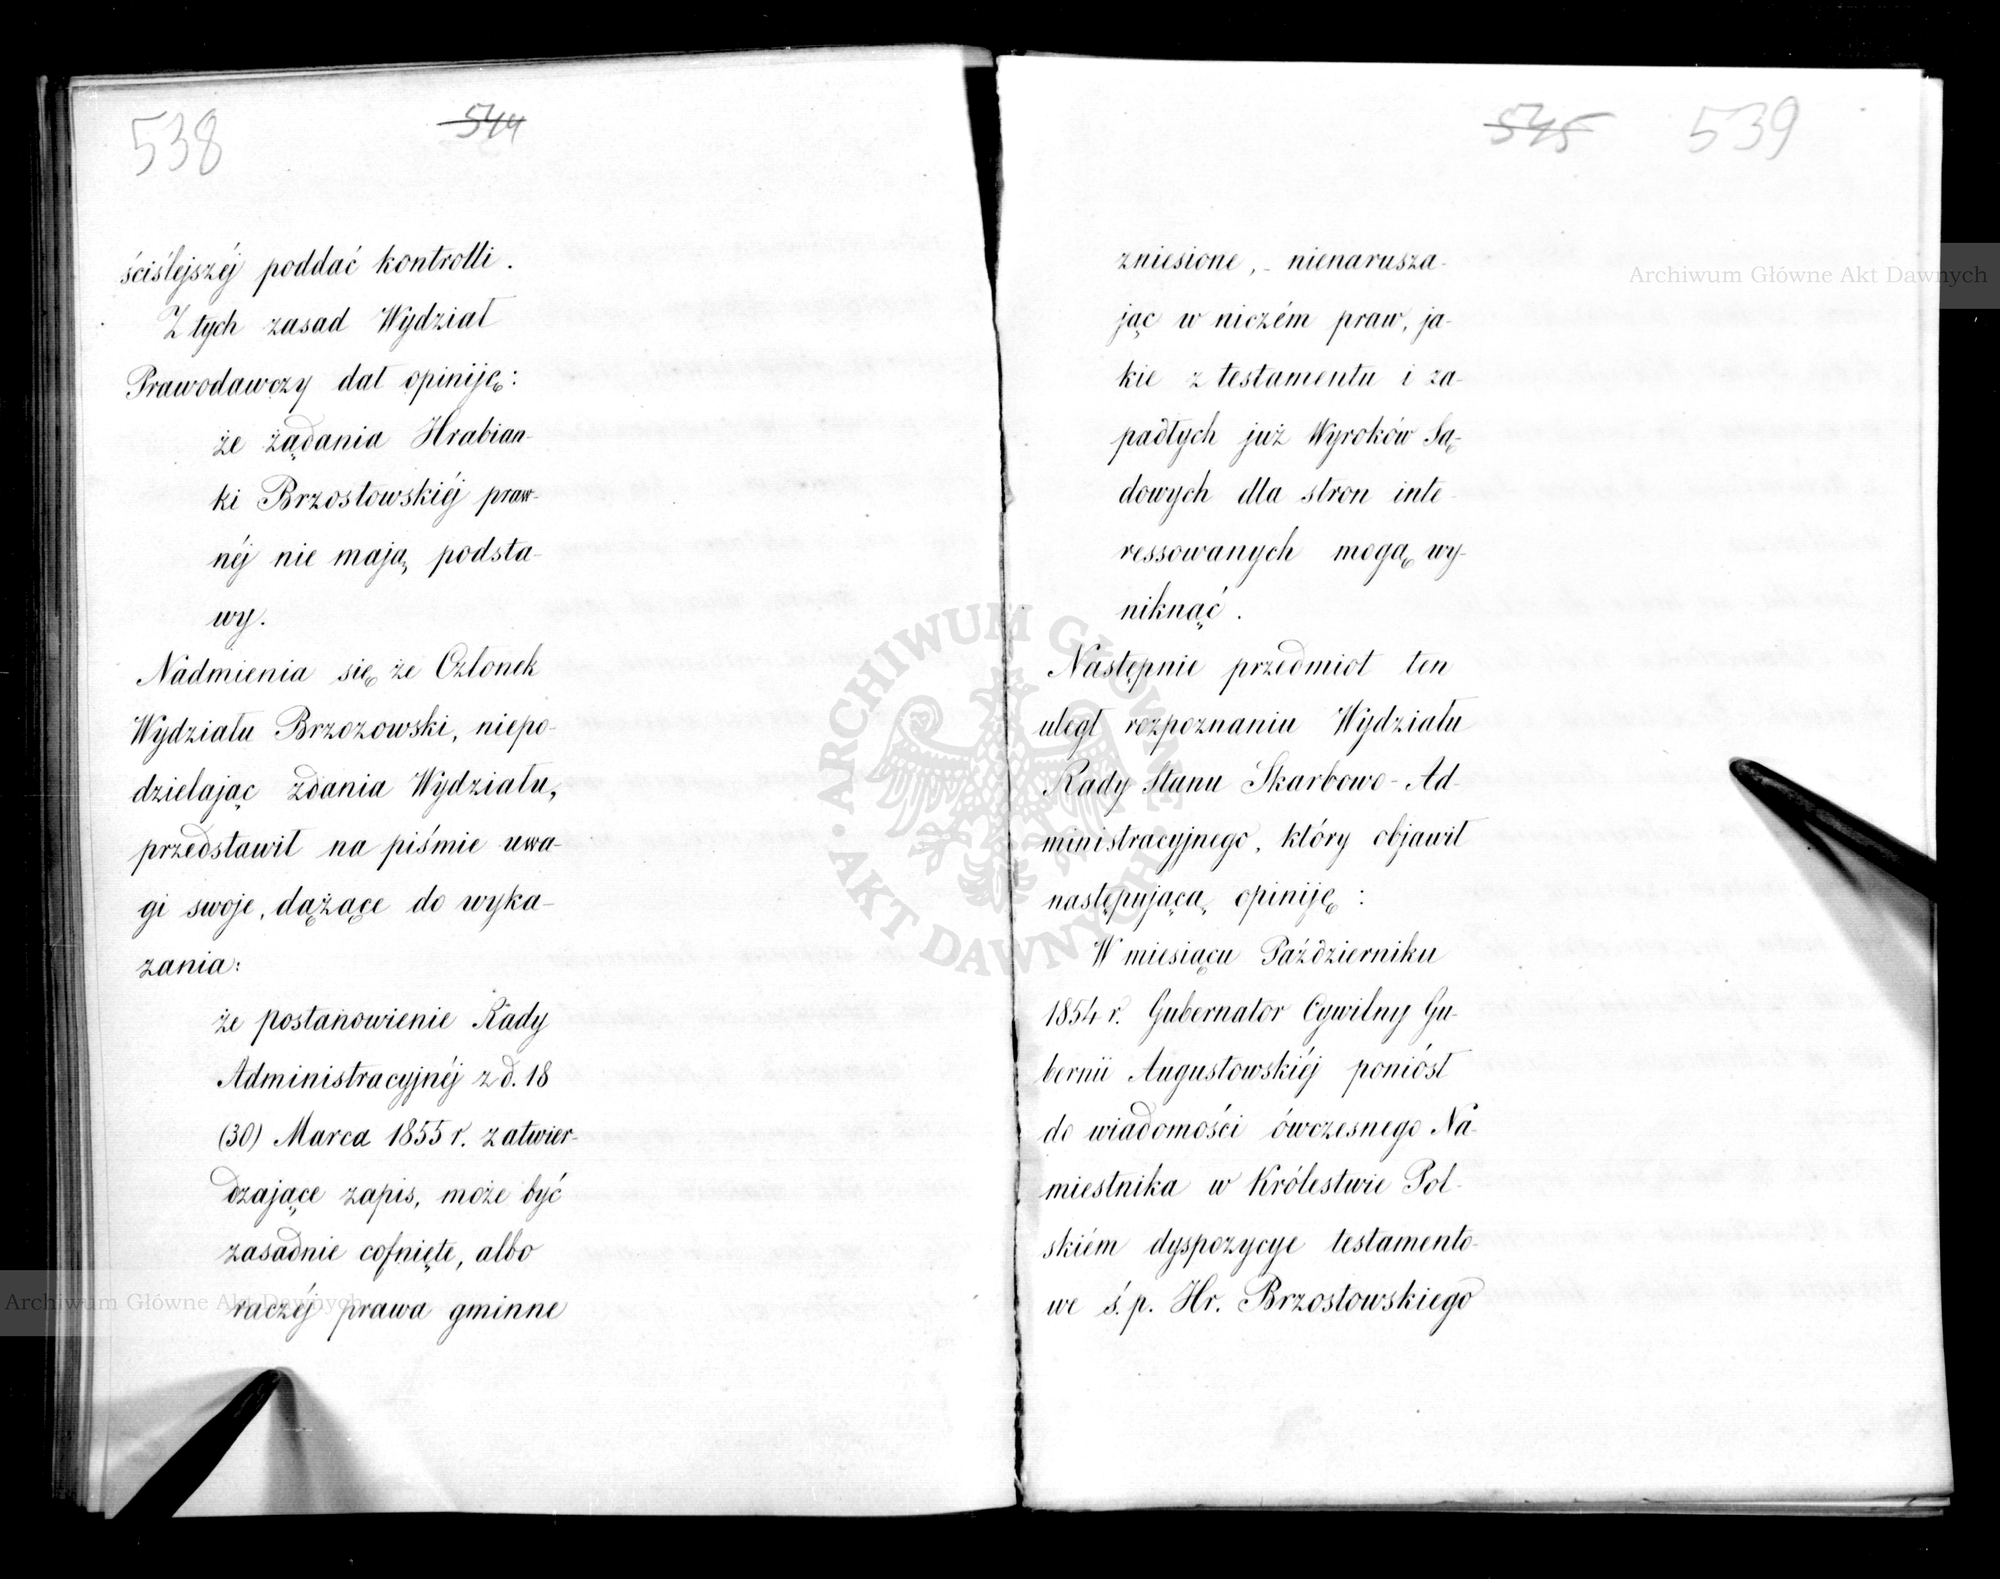 538
544
ściślejszéj poddać kontrolli.
Z tych zasad Wydział
Prawodawczy dał opiniję:
że żądania Hrabian-
ki Brzostowskiéj praw-
néj nie mają podsta-
wy.
Nadmienia się że Członek
Wydziału Brzozowski, niepo-
dzielając zdania Wydziału,
przedstawił na piśmie uwa-
gi swoje, dążące do wyka-
zania:
że postanowienie Rady
Administracyjnéj z d. 18
(30) Marca 1855 r. zatwier-
dzające zapis, może być
zasadnie cofnięte, albo
raczéj prawa gminne
545
539
zniesione, nienarusza-
jąc w niczém praw, ja-
kie z testamentu i za-
padłych już Wyroków Są-
dowych dla stron inte-
ressowanych mogą wy-
niknąć.
Następnie przedmiot ten
uległ rozpoznaniu Wydziału
Rady Stanu Skarbowo-Ad-
ministracyjnego, który objawił
następującą opiniję:
W miesiącu Październiku
1854 r. Gubernator Cywilny Gu-
bernii Augustowskiéj poniósł
do wiadomości ówczesnego Na-
miestnika w Królestwie Pol-
skiém dyspozycye testamento-
we ś.p. Hr. Brzostowskiego
Archiwum Główne Akt Dawnych
Archiwum Główne Akt Dawnych
ARCHIWUM GŁÓWNE
AKT DAWNYCH